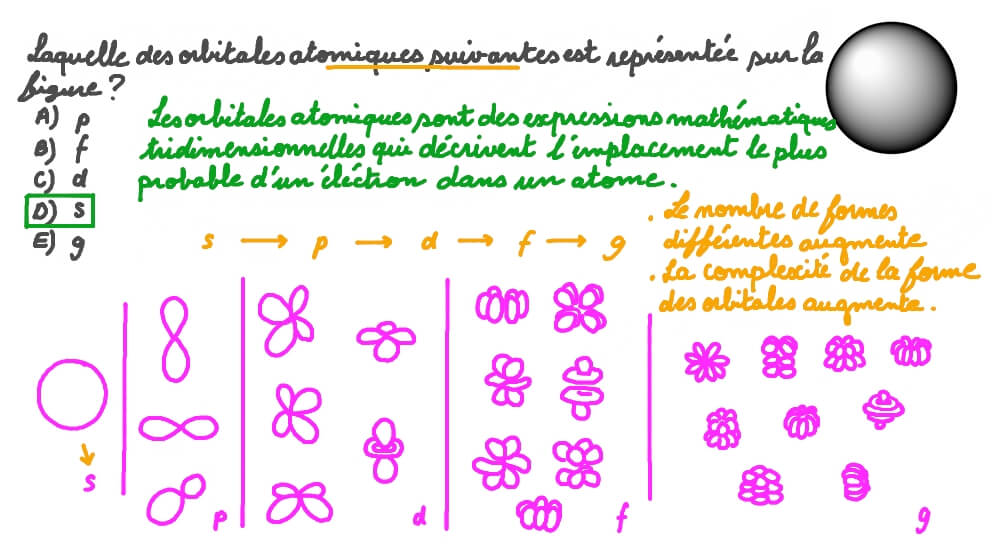 Laquelle des orbitales atomiques suivantes est représentée sur la
figure ?
A) p
B) f
C) d
D) s
E) g
Les orbitales atomiques sont des expressions mathématiques
tridimensionnelles qui décrivent l'implacement le plus
probable d'un éléction dans un atome.
. Le nombre de formes
différentes augmente
. La complexité de la forme
des orbitales augmente.
s → p → d → f → g
s
p
d
f
g